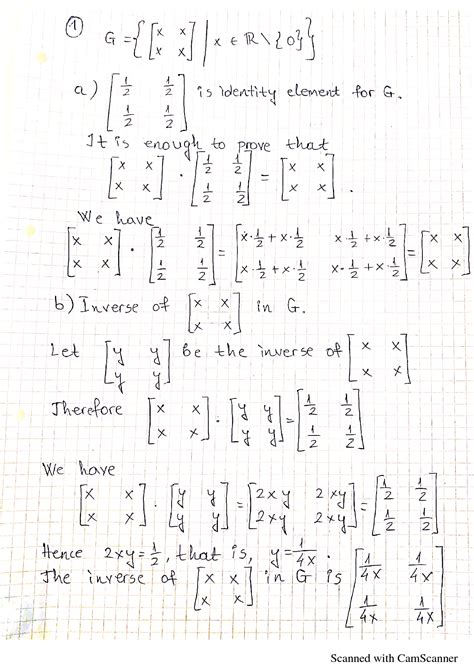 ① G = { [x x; x x] | x ∈ ℝ \ {0} }
a) [1/2 1/2; 1/2 1/2] is identity element for G.
It is enough to prove that
[x x; x x] · [1/2 1/2; 1/2 1/2] = [x x; x x].
We have
[x x; x x] · [1/2 1/2; 1/2 1/2] = [x·1/2 + x·1/2 x·1/2 + x·1/2; x·1/2 + x·1/2 x·1/2 + x·1/2] = [x x; x x]
b) Inverse of [x x; x x] in G.
Let [y y; y y] be the inverse of [x x; x x]
Therefore [x x; x x] · [y y; y y] = [1/2 1/2; 1/2 1/2]
We have
[x x; x x] · [y y; y y] = [2xy 2xy; 2xy 2xy] = [1/2 1/2; 1/2 1/2]
Hence 2xy = 1/2, that is, y = 1/4x.
The inverse of [x x; x x] in G is [1/4x 1/4x; 1/4x 1/4x]
Scanned with CamScanner